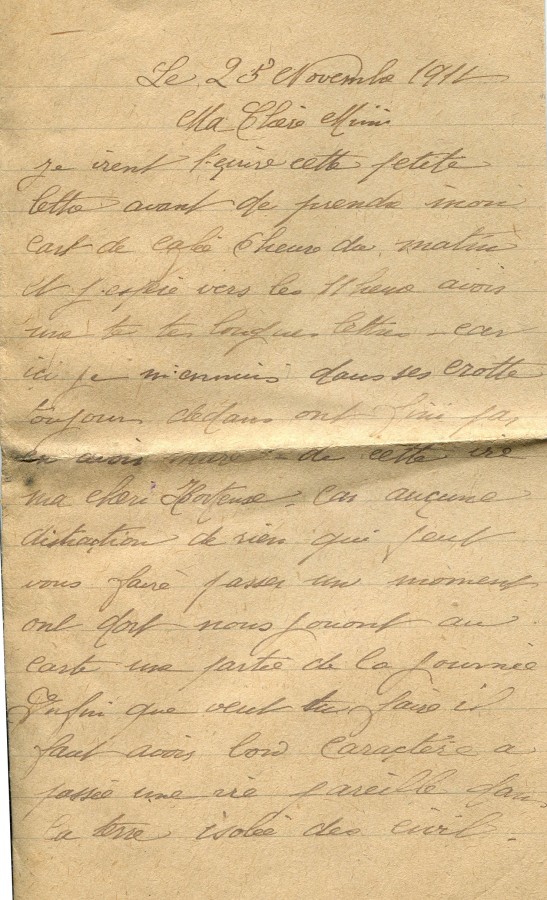 Le 25 Novembre 191
Ma Chère Mimi
Je vient t'ecrire cette petite
lettre avant de prendre mon
cart de café 6 heure du matin
et j'espere vers les 11 heure avoir
une longues lettres car
ici je m'ennuis dans ses crotte
toujours dedans ont fini par
en avoir mare de cette vie
ma cheri Hortense. Car aucune
distraction de rien qui peut
vous faire passer un moment
ont dort nous jouont au
carte une partie de la journée
Enfin que veut tu faire il
faut avoir bon caractère a
passée une vie pareille dans
la terre isolée des civil.